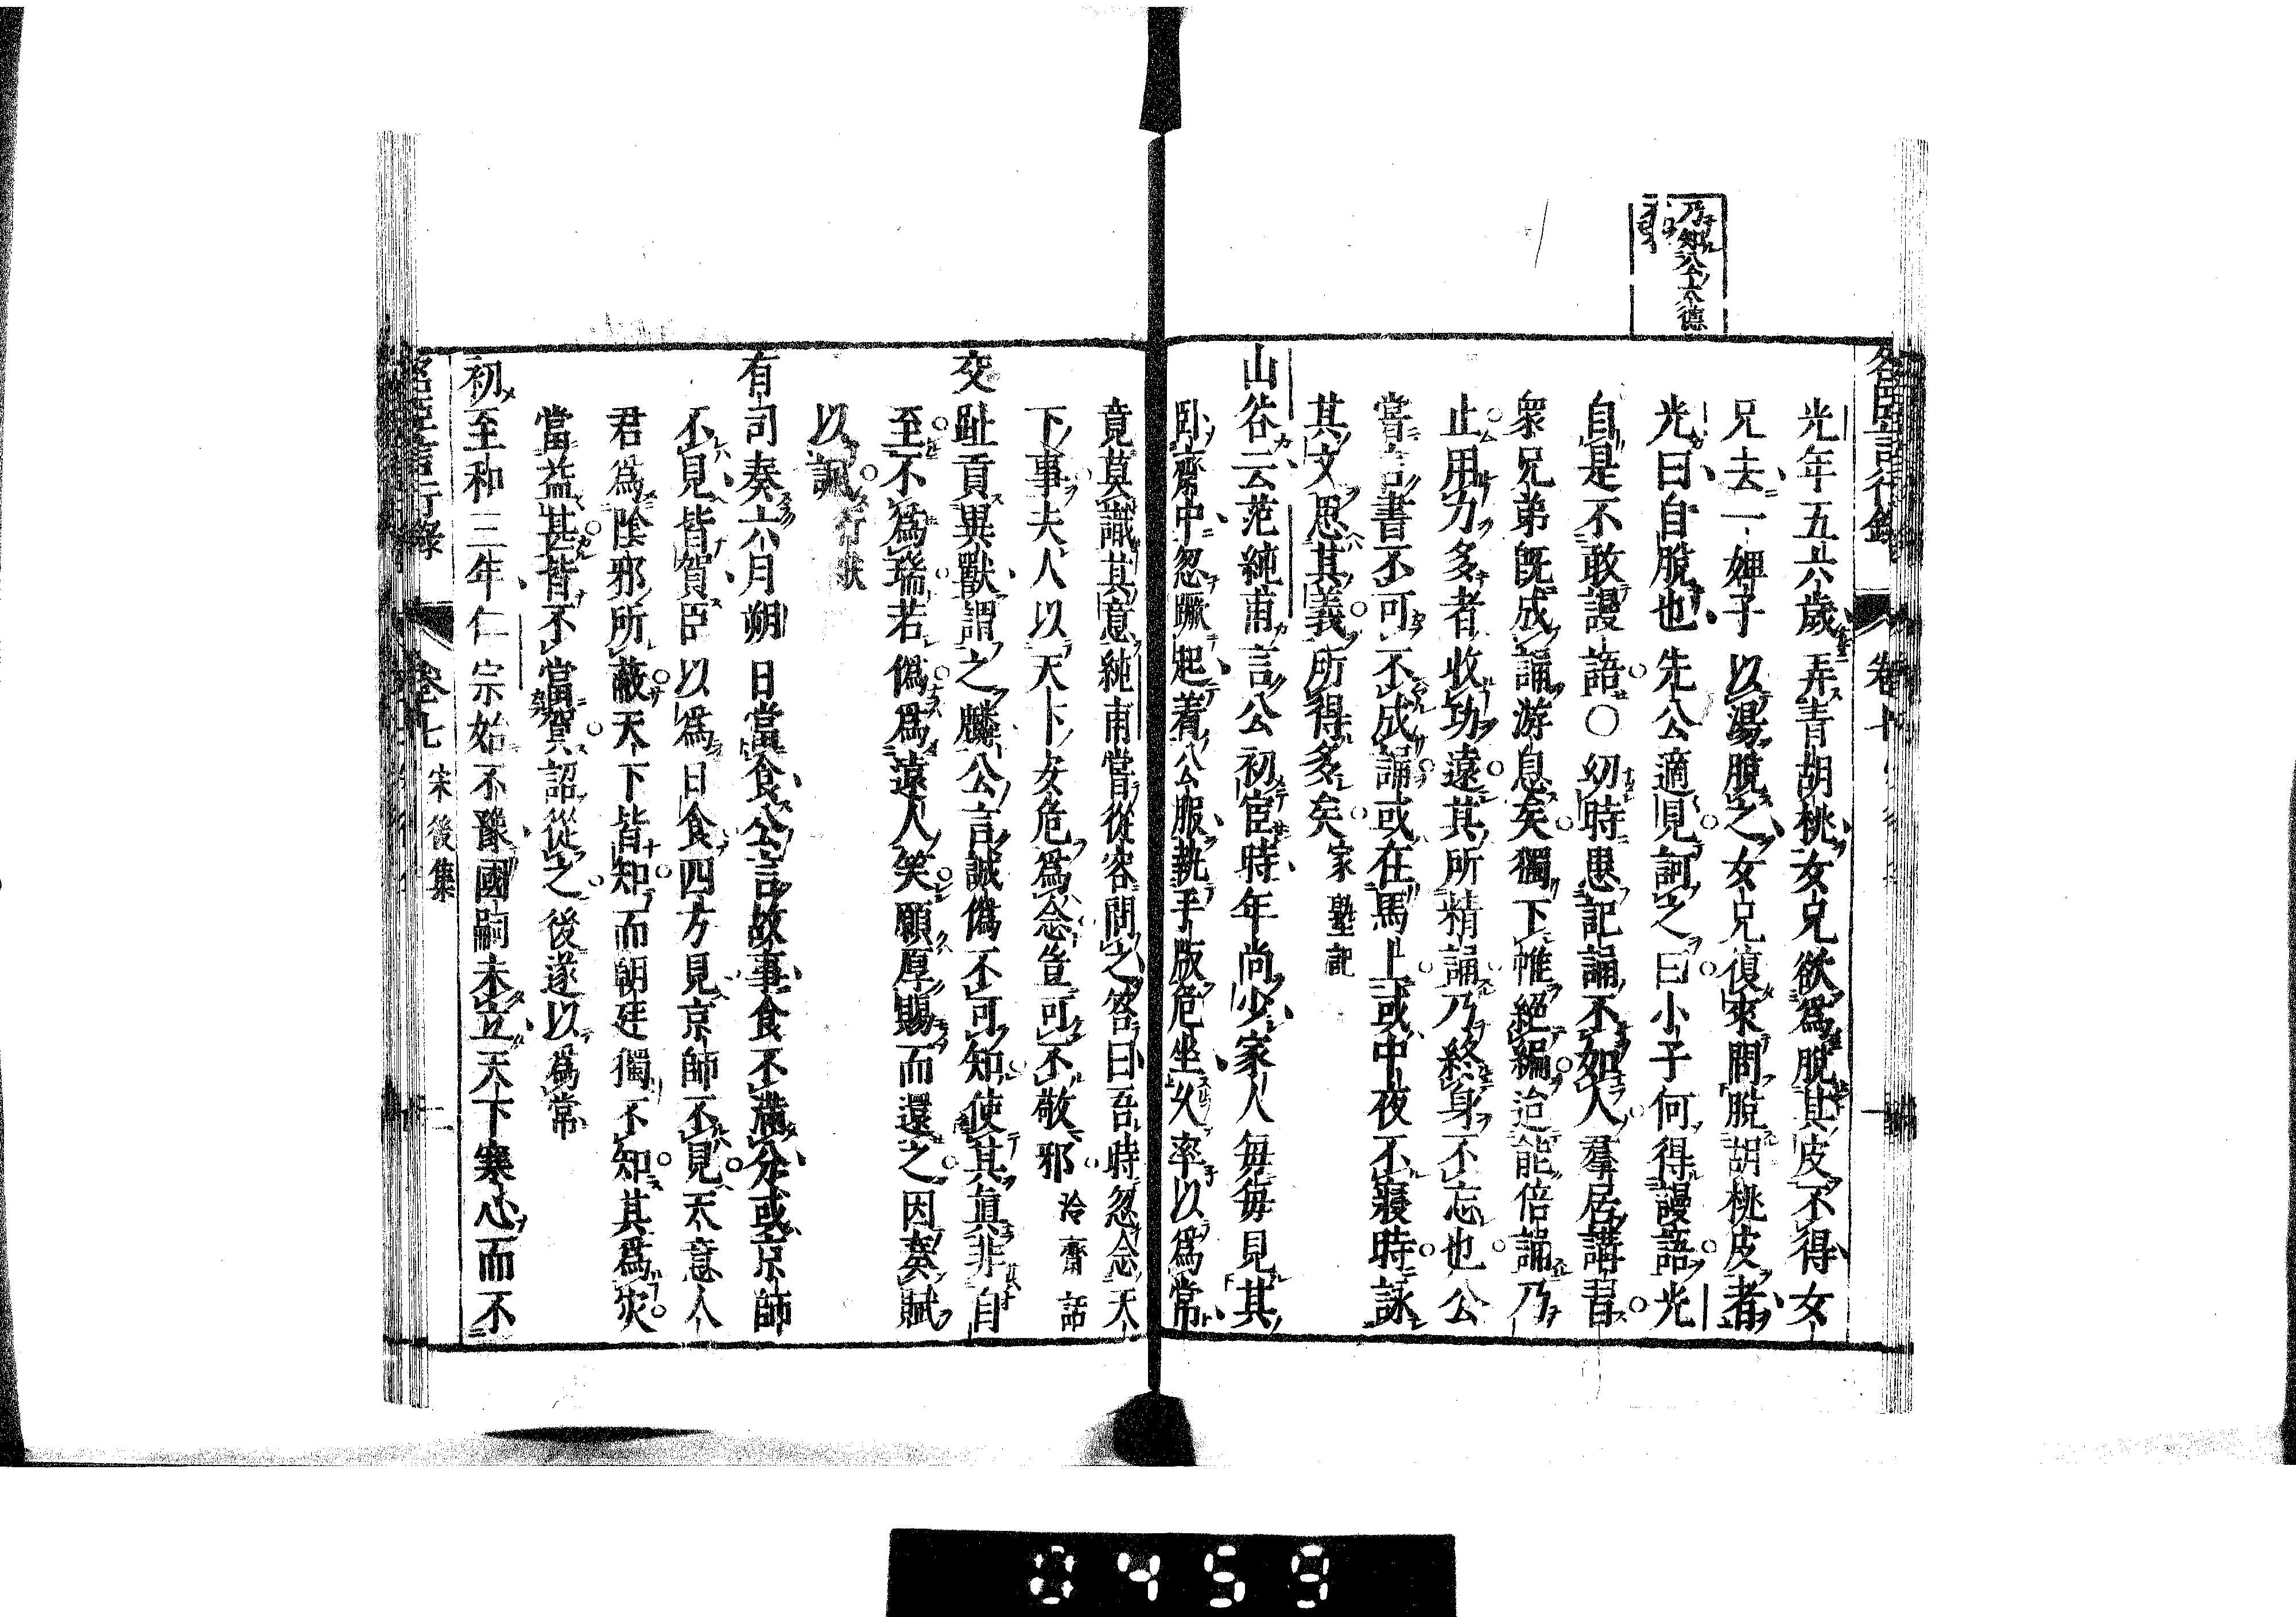 乃知公大德
光年五六歲弄青胡桃女兄欲爲脫其皮不得女
兄去一婢子以湯脫之女兄復來問脫胡桃皮者
光曰自脫也先公適見訶之曰小子何得謾語光
自是不敢謾語○幼時患記誦不如人羣居講習
衆兄弟既成誦游息矣獨下帷絕編迨能倍誦乃
止用力多者收功遠其所精誦乃終身不忘也公
嘗言書不可不成誦或在馬上或中夜不寢時詠
其文思其義所得多矣家塾記
山谷云范純甫言公初宦時年尚少家人每每見其
臥齋中忽蹶起著公服執手版危坐久率以爲常
竟莫識其意純甫嘗從容問之答曰吾時忽念天
下事夫人以天下安危爲念豈可不敬邪冷齋話
交趾貢異獸謂之麟公言誠僞不可知使其眞非自
至不爲瑞若僞爲遠人笑願厚賜而還之因奏賦
以諷行狀
有司奏六月朔日當食公言故事食不滿分或京師
不見皆賀臣以爲日食四方見京師不見天意人
君爲陰邪所蔽天下皆知而朝廷獨不知其爲災
當益甚皆不當賀詔從之後遂以爲常
初至和三年仁宗始不豫國嗣未立天下寒心而不
名臣言行錄 卷七 宋後集 二
0459